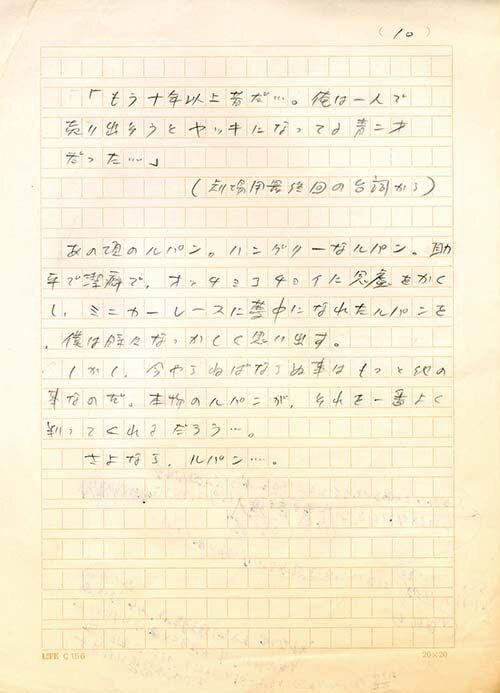 (10)
「もう十年以上昔だ…。俺は一人で
売り出そうとヤッキになってる青二才
だった…」
(劇場用最終回の台詞から)
あの頃のルパン。ハングリーなルパン。
で潔癖で、オッチョコチョイに
し、ミニカーレースに夢中になれたルパンを
、僕は時々なつかしく思い出す。
しかし、今やらねばならぬ事はもっと他の
事なのだ。本物のルパンが、それを一番よく
判ってくれるだろう…。
さよなら、ルパン……。
LIFE C156
20×20